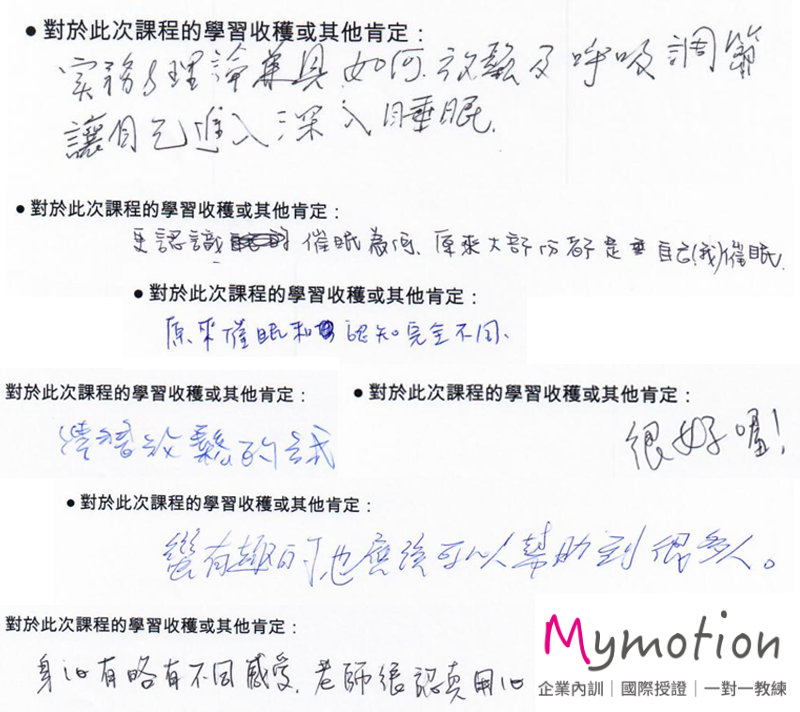 ● 對於此次課程的學習收穫或其他肯定：
实務与理論兼具,如何放鬆及呼吸調節
讓自己進入深入睡眠.
● 對於此次課程的學習收穫或其他肯定：
更認識 催眠為何.原來大部份都是 自己(我)催眠.
● 對於此次課程的學習收穫或其他肯定：
原來催眠和 認知完全不同.
對於此次課程的學習收穫或其他肯定：
學習放鬆的
● 對於此次課程的學習收穫或其他肯定：
很好喔!
● 對於此次課程的學習收穫或其他肯定：
蠻有趣的,也應該可以幫助到很多人。
對於此次課程的學習收穫或其他肯定：
身心有略有不同感受,老師很認真用心
Mymotion
企業內訓｜國際授證｜一對一教練